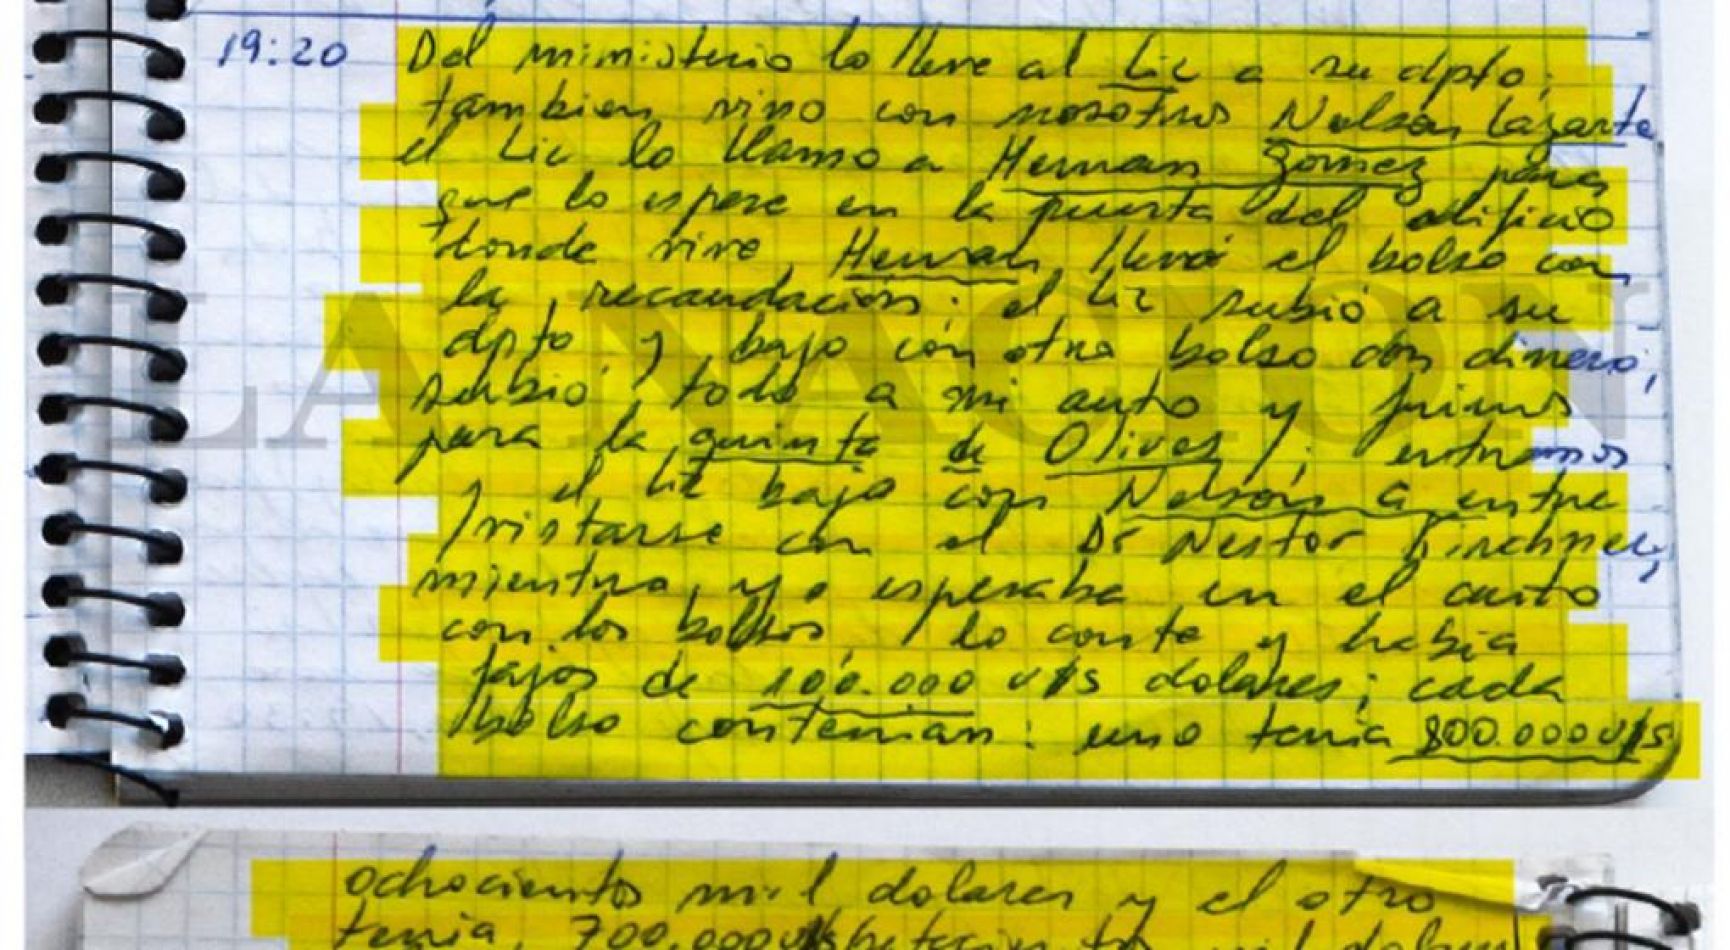 19:20 Del mimisterio lo lleve al Lic a su dpto;
tambien vino con nosotros Nelson Lazarte
el Lic lo llamo a Hernan Gomez para
que lo espere en la puerta del edificio
donde vive, Hernan llevó el bolso con
la recaudación; el Lic subió a su
dpto y bajo con otro bolso con dinero;
subio todo a mi auto y fuimos
para la quinta de Olivos; entramos
y el Lic bajo con Nelson a entre
vistarse con el Dr Nestor Kirchner,
mientras yo esperaba en el auto
con los bolsos, lo conte y habia
fajos de 100.000 u$s dolares; cada
bolso contenian: uno tenia 800.000 u$s
LA NACION
ochocientos mil dolares y el otro
tenia 700.000 u$s setecientos mil dolares